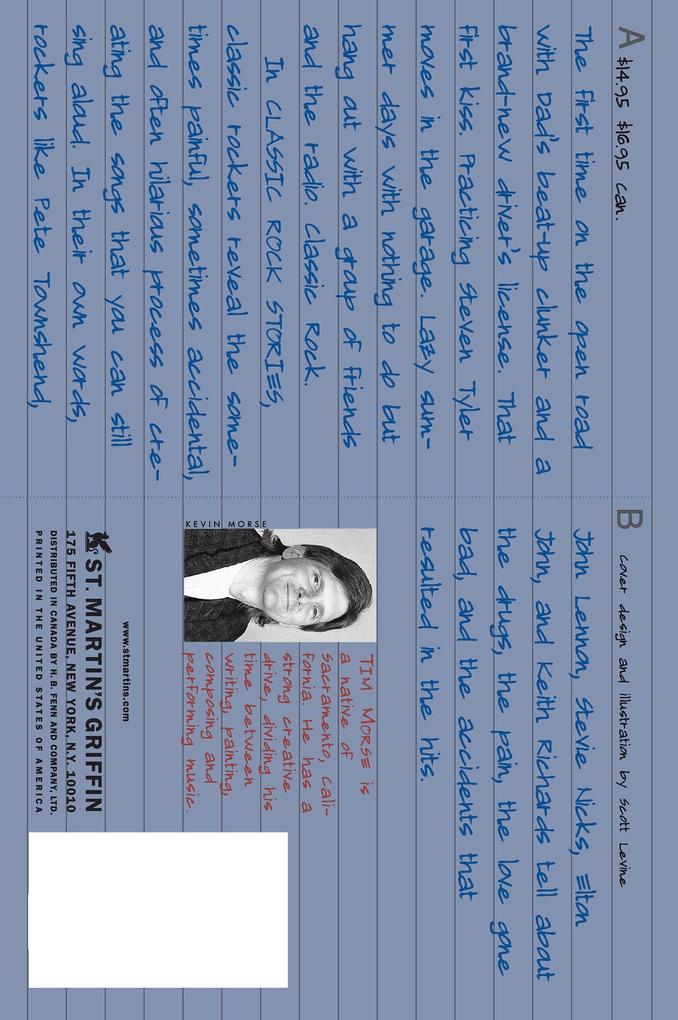 A $14.95 $16.95 can.
The first time on the open road
with Dad's beat-up clunker and a
brand-new driver's license. That
first kiss. Practicing Steven Tyler
moves in the garage. Lazy sum-
mer days with nothing to do but
hang out with a group of friends
and the radio. Classic Rock.
In CLASSIC ROCK STORIES,
classic rockers reveal the some-
times painful, sometimes accidental,
and often hilarious process of cre-
ating the songs that you can still
sing aloud. In their own words,
rockers like Pete Townshend,
B cover design and illustration by Scott Levine
John Lennon, Stevie Nicks, Elton
John, and Keith Richards tell about
the drugs, the pain, the love gone
bad, and the accidents that
resulted in the hits.
KEVIN MORSE
TIM MORSE is
a native of
Sacramento, Cali-
fornia. He has a
strong creative
drive, dividing his
time between
writing, painting,
composing and
performing music.
www.stmartins.com
ST. MARTIN'S GRIFFIN
175 FIFTH AVENUE, NEW YORK, N.Y. 10010
DISTRIBUTED IN CANADA BY H. B. FENN AND COMPANY, LTD.
PRINTED IN THE UNITED STATES OF AMERICA